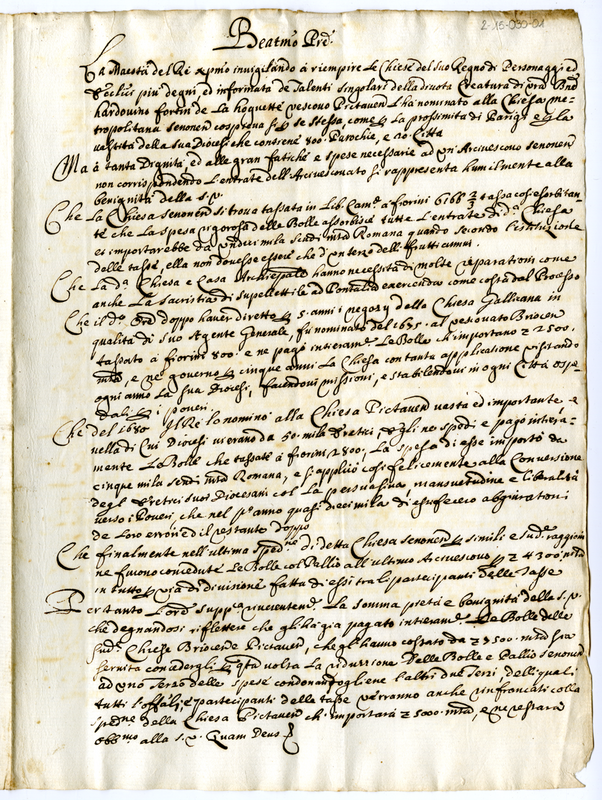 2-15-030-01
Beatmo Prē.
La Maestà del Re sepre invigilando à riempire Le Chiese del suo Regno di Personaggi ed
Eccl.ci più degni, ed informata de Talenti singolari della divota Creatura di Vra Bne
hardovino fortin de La hoguette Vescovo Pictaven L'ha nominato alla Chiesa me-
tropolitana senonen cospicua si p se stessa, come p La prossimità di Parigi, e p la
vastità della sua Diocesi che contiene 800. Parochie, e 20 Città
Ma à tanta Dignità, ed alle gran fatiche e spese necessarie ad un Arcivescovo senonen
non corrispondendo L'entrate dell'Arcivescovato si rappresenta humilmente alla
benignità della S.V.
Che La Chiesa senonen si trova tassata in Lib. Cam. à fiorini 6166 2/3 tassa così esorbitan-
te che La spesa rigorosa delle Bolle assorbisce tutte L'entrate di d.a Chiesa
et importarebbe da undeci mila scudi mta Romana quando secondo L'istituzione
delle tasse, ella non dovesse essere che d'un terzo delli frutti
Che La d.a Chiesa e Casa Archiepale hanno necessità di molte reparationi come
anche La Sacristia di suppellettile ad Pontalia exercenda come costa dal Processo
Che il d.o Ore doppo haver dirette p 5. anni i negozy della Chiesa Gallicana in
qualità di suo Agente Generale, fu nominato del 1675. al vescovato Briocen
tassato à fiorini 800. e ne pagò intieram.e Le Bolle ch'importano 2500.
mta, e ne governò p cinque anni La Chiesa con tanta applicatione visitando
ogni anno La sua Diocesi, facendovi missioni, e stabilendovi in ogni Città ospe-
dali p i poveri
Che del 1680 Il Re lo nominò alla Chiesa Pictaven vasta ed importante e
nella di Cui Diocesi v'erano da 50. mila Eretici, Egli ne spedì e pagò intiera-
mente Le Bolle che tassate à fiorini 2800, La spesa di esse importò da
cinque mila scudi mta Romana, e si applicò così felicemente alla Conversione
degl'Eretici suoi Diocesani col La persuasiva, mansuetudine e liberalità
verso i Poveri che nel p.o anno quasi diecimila di essi fecero abjurationi
de Loro errori ed il restante doppo
Che finalmente nell'ultima sped.ne di detta Chiesa senonen p simili e sud.e raggioni
ne furono concedute Le Bolle col Pallio all'ultimo Arcivescovo p 4300 mta
in tutto p via di divisione fatta di essi tra li participanti delle Tasse
Per tanto L'ore supp.ca riverentem.e La somma pietà e benignità della S.V.
che degnandosi riflettere che gli ha già pagato intieram.e Le Bolle delle
sud.e Chiese Briocen e Pictaven, che gli hanno costato da 7500 mta sia
servita concedergli p qta volta La riduzione delle Bolle e Pallio senonen
ad uno Terzo delle spese condonandogliene l'altri due Terzi, delli quali
tutti l'offali, e partecipanti delle tasse verranno anche rinfrancati colla
sped.ne della Chiesa Pictaven ch'importarà 5000 mta, e ne restarà
obb.mo alla S.V. Quam Deus